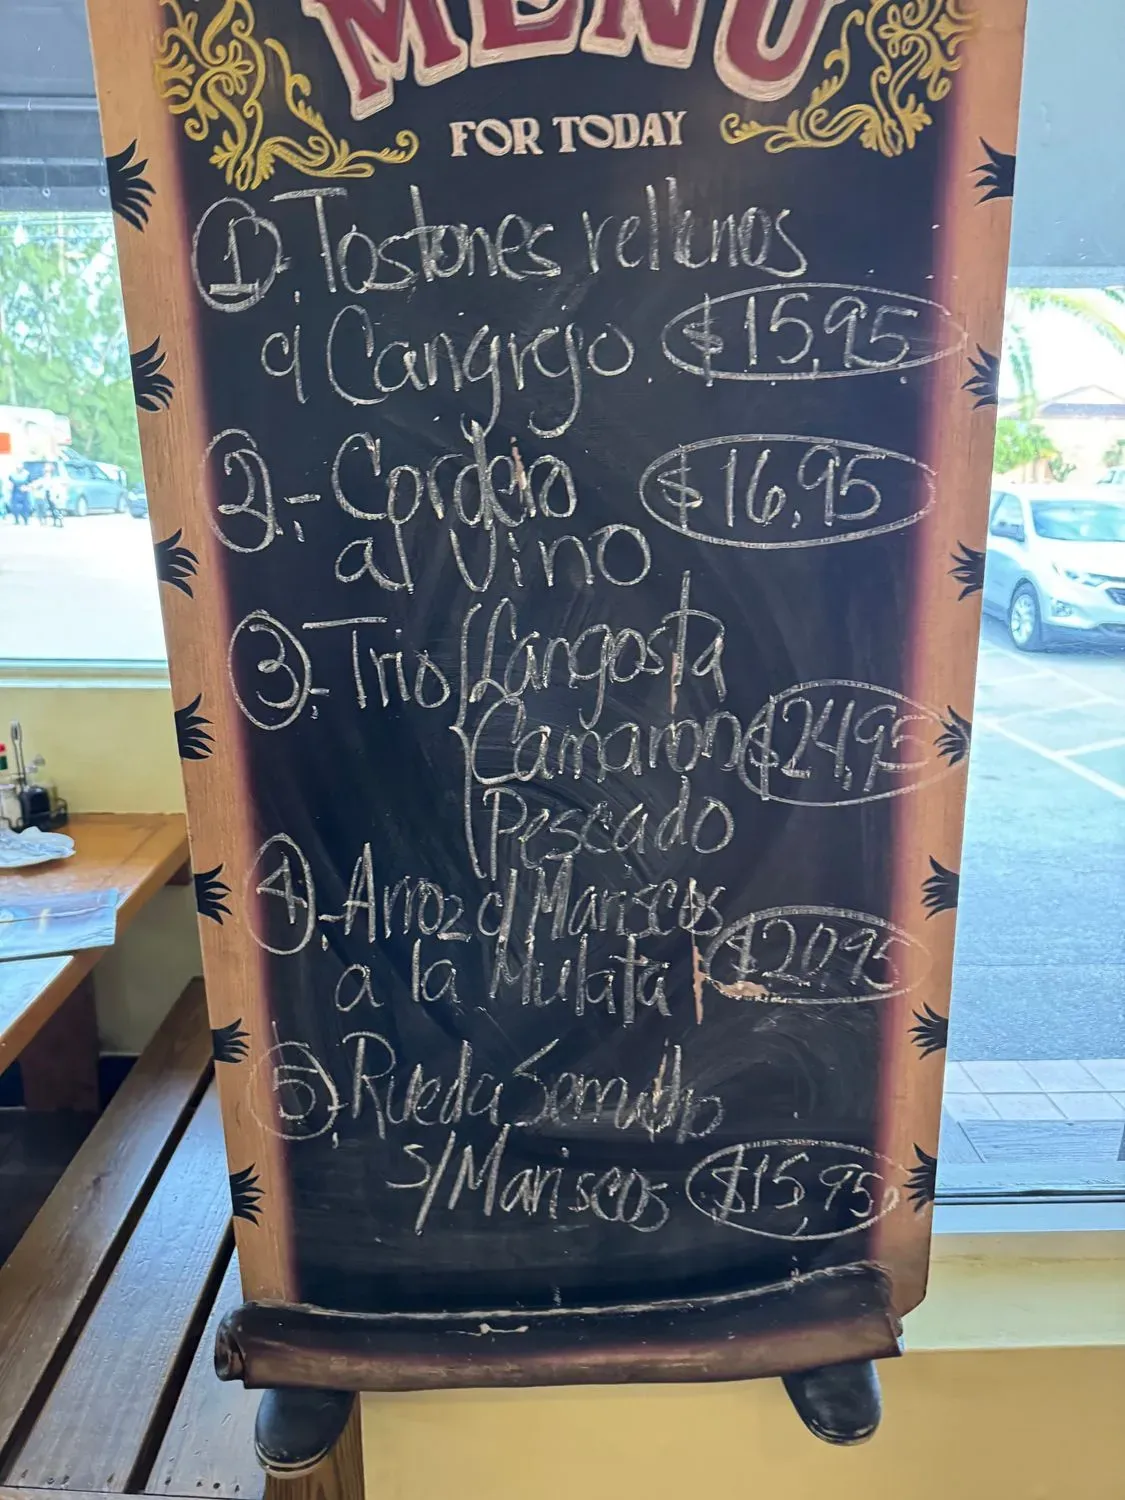 MENU
FOR TODAY
1. Tostones rellenos
d Cangrejo. $15,95
2.- Cordero $16,95
al Vino
3.- Trio Langosta
Camaron $24,95
Pescado
4.- Arroz d Mariscos
a la Mulata $20,95
5.- Rueda Serrucho
s/Mariscos $15,95